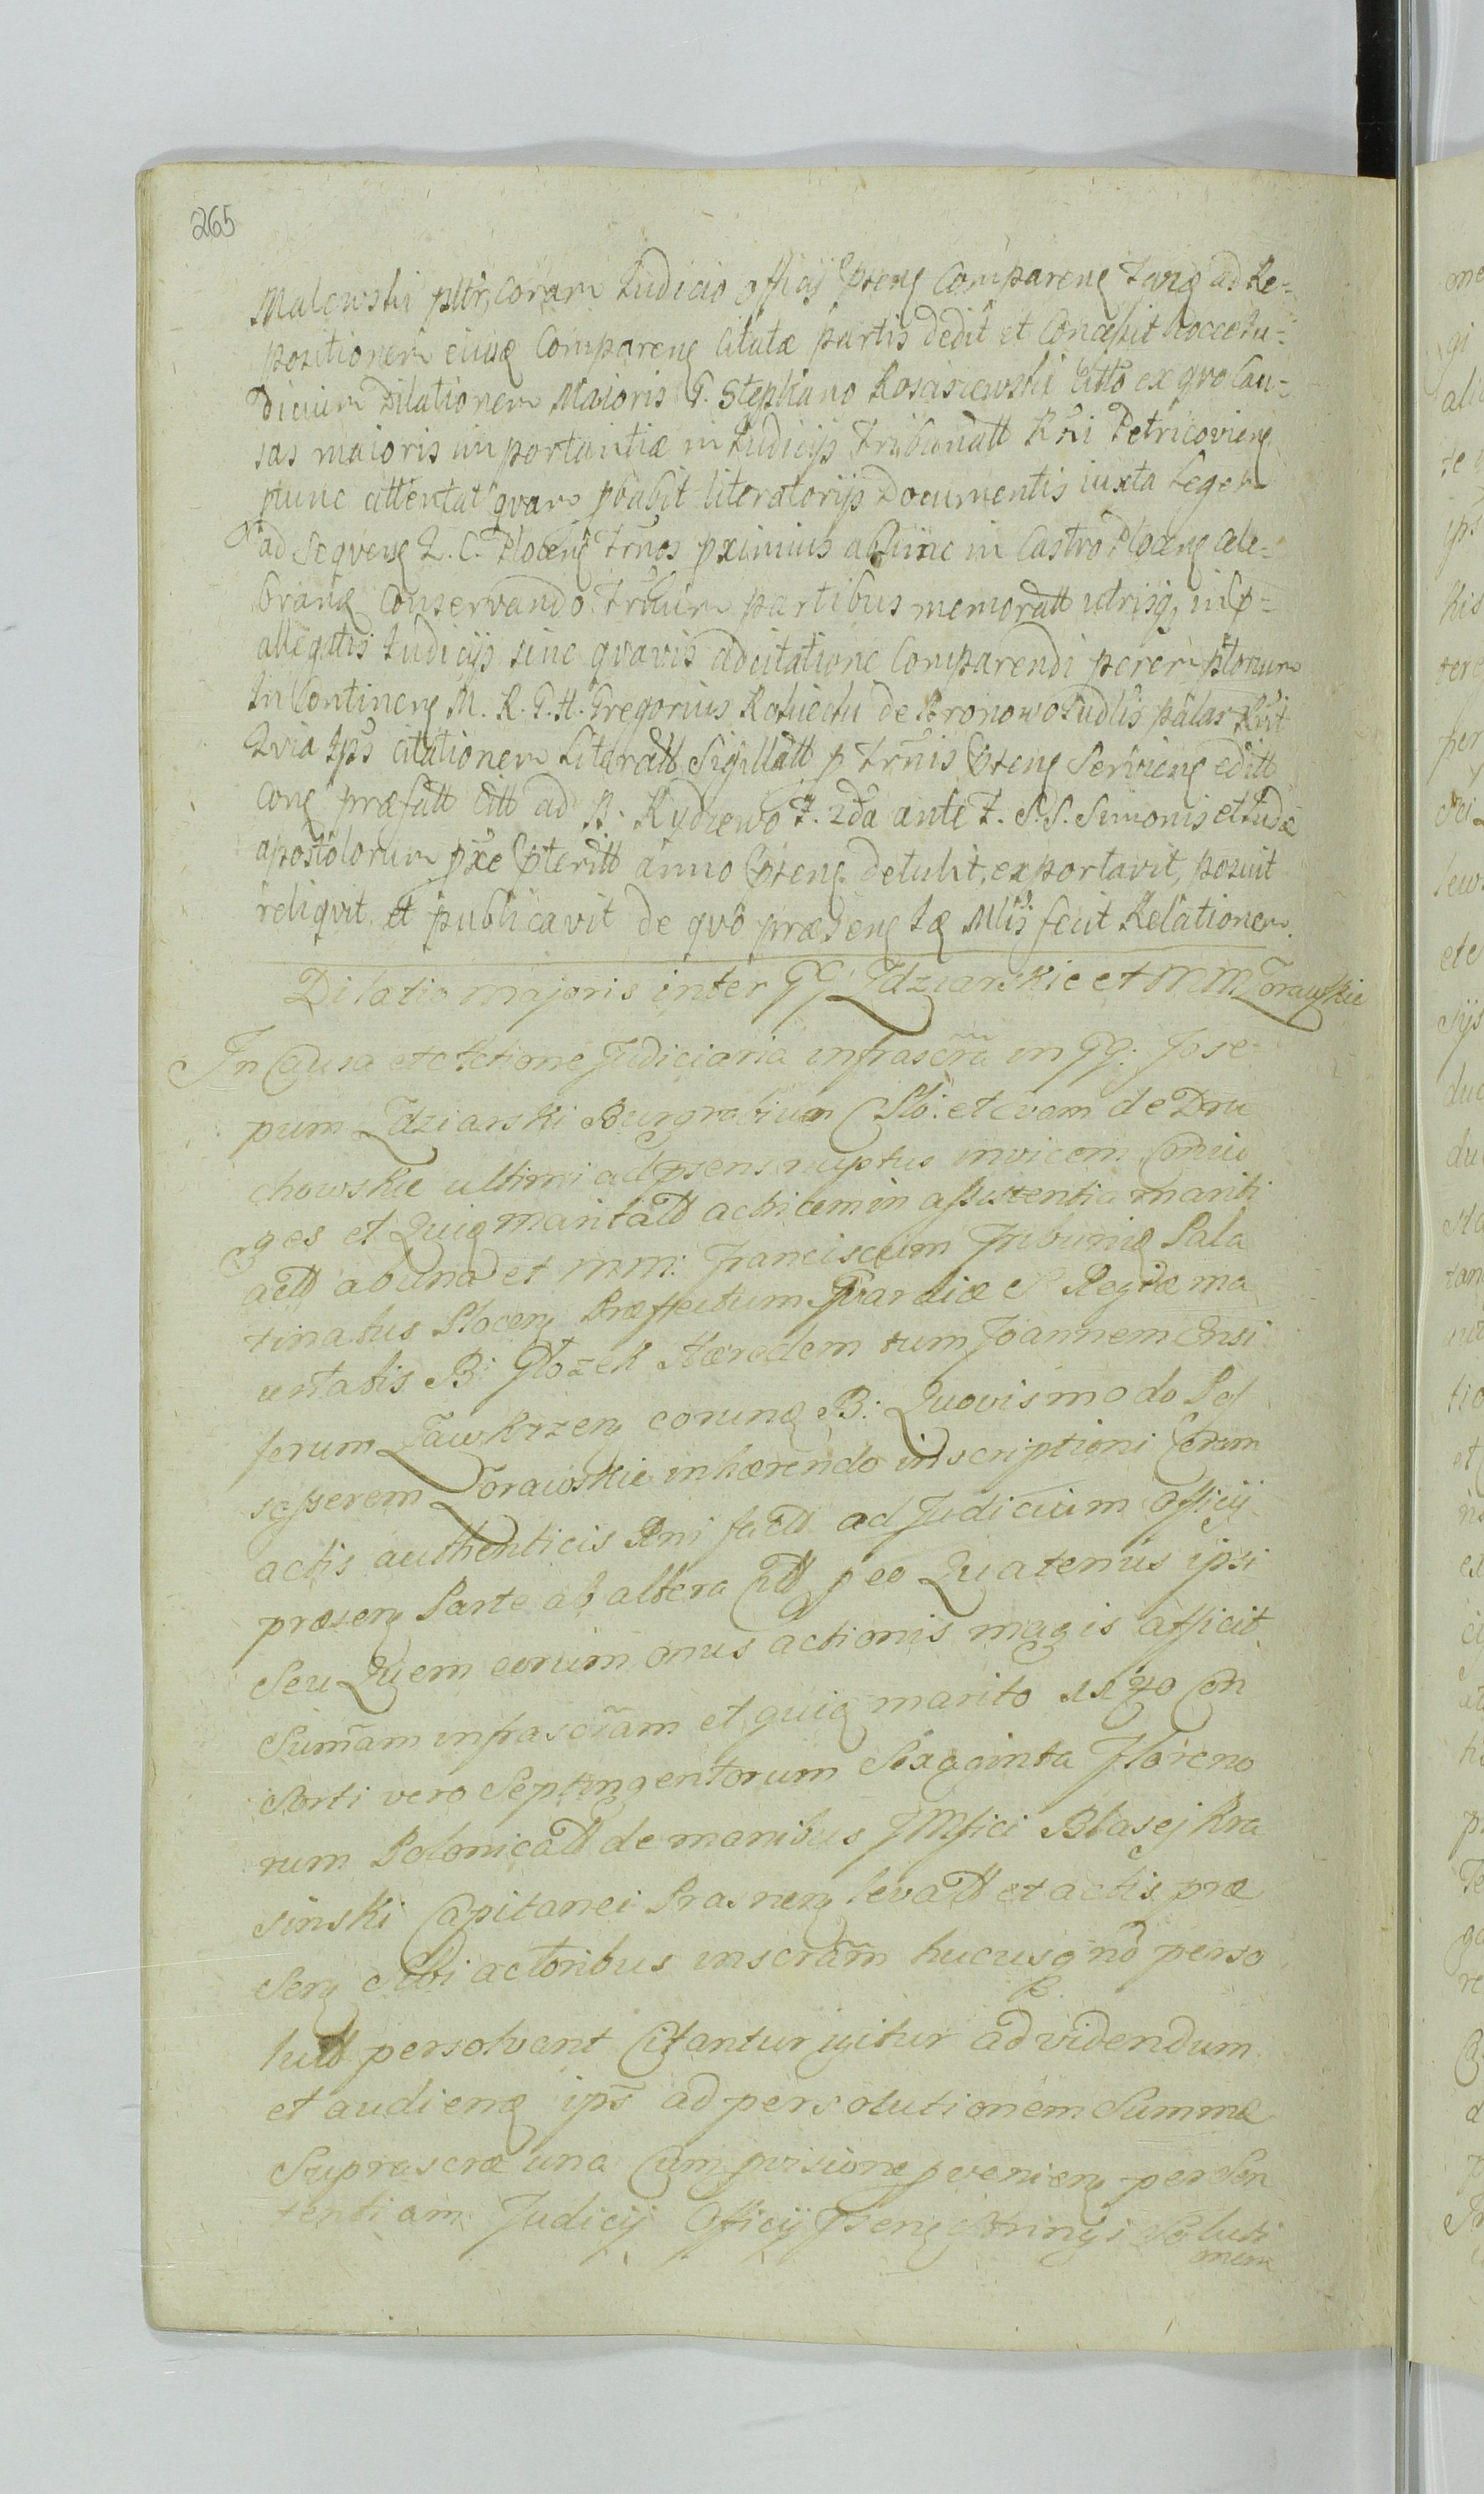 265
Malewski pltr, Coram Judicio Officij Pteng Compareng Tanq ad Re=
positionem eiusq Compareng Citatæ partis dedit et Concessit hocce Ju=
dicium Dilationem Maioris G. Stephano Rosciszewski Citto ex quo Cau=
sas maioris importantiæ in Judicijs Tribunatt Rni Petricovieng
nunc attentat quam pbabit literatorijs Documentis iuxta Legem
ad Sequeng Q. C. Ploceng Trnos pximius abhinc in Castro Ploceng Cele=
brang Conservando. Trnum partibus memoratt utrisq, in p=
allegatis Judicijs sine quavis adcitatione Comparendi peremptorium
In Contineng M. R. G. H. Gregorius Kotuechi de Bronowo Judlis palar Rvit
Quia Ips citationem Literatt Sigillatt p Trnis Pteng Servieng editt
Cong præfatt Citt ad B. Kydzewo F. 2da ante F. S.S. Simonis et Judæ
apostolorum pxe Pteritt anno Pteng detulit, exportavit, posuit
reliquit et publicavit de quo præseng Iq Mlis fecit Relationem.
Dilatio majoris inter GG Idziarskie et MM Zorawskie
In Causa et Actione Judiciaria infrascrā in GG. Jose
pum Idziarski Burgrabium Plo: et evam de Dru
chowskie ultimi ad psens nuptus invicem Coniu
ges et Quiq maritatt actricem in assistentia mariti
actt ab una et MM: Franciscum Tribunq Pala
tinatus Ploceng Præffectum Gvardiæ S Regiæ ma
iestatis B: Głozek Hæredem tum Joannem Ensi
ferum Zawkrzeng corunq B: Quovismodo Pos
sesserem Zorawskie inhærendo inscriptioni Coram
actis authenticis Rni factt ad Judicium Officij
præseng Parte ab altera Citt p eo Quatenus ipsi
Seu Quem eorum onus actionis magis afficit
Sumam infrascram et quiq marito 1270 Con
Sorti vero Septingentorum Sexaginta Floreno
rum Polonicatt de manibus JMfici Blasej Kra
sinski Capitanei Prasneng levatt et actis præ
Seng Sibi actoribus inscram hucusq nd perso
lutt persolvant Citantur igitur ad videndum
et audieng ips ad persolutionem Summæ
Suprascræ una Cum pvisione pvenieng per Sen
tentiam Judicij Officij Pseng Stringi Soluti